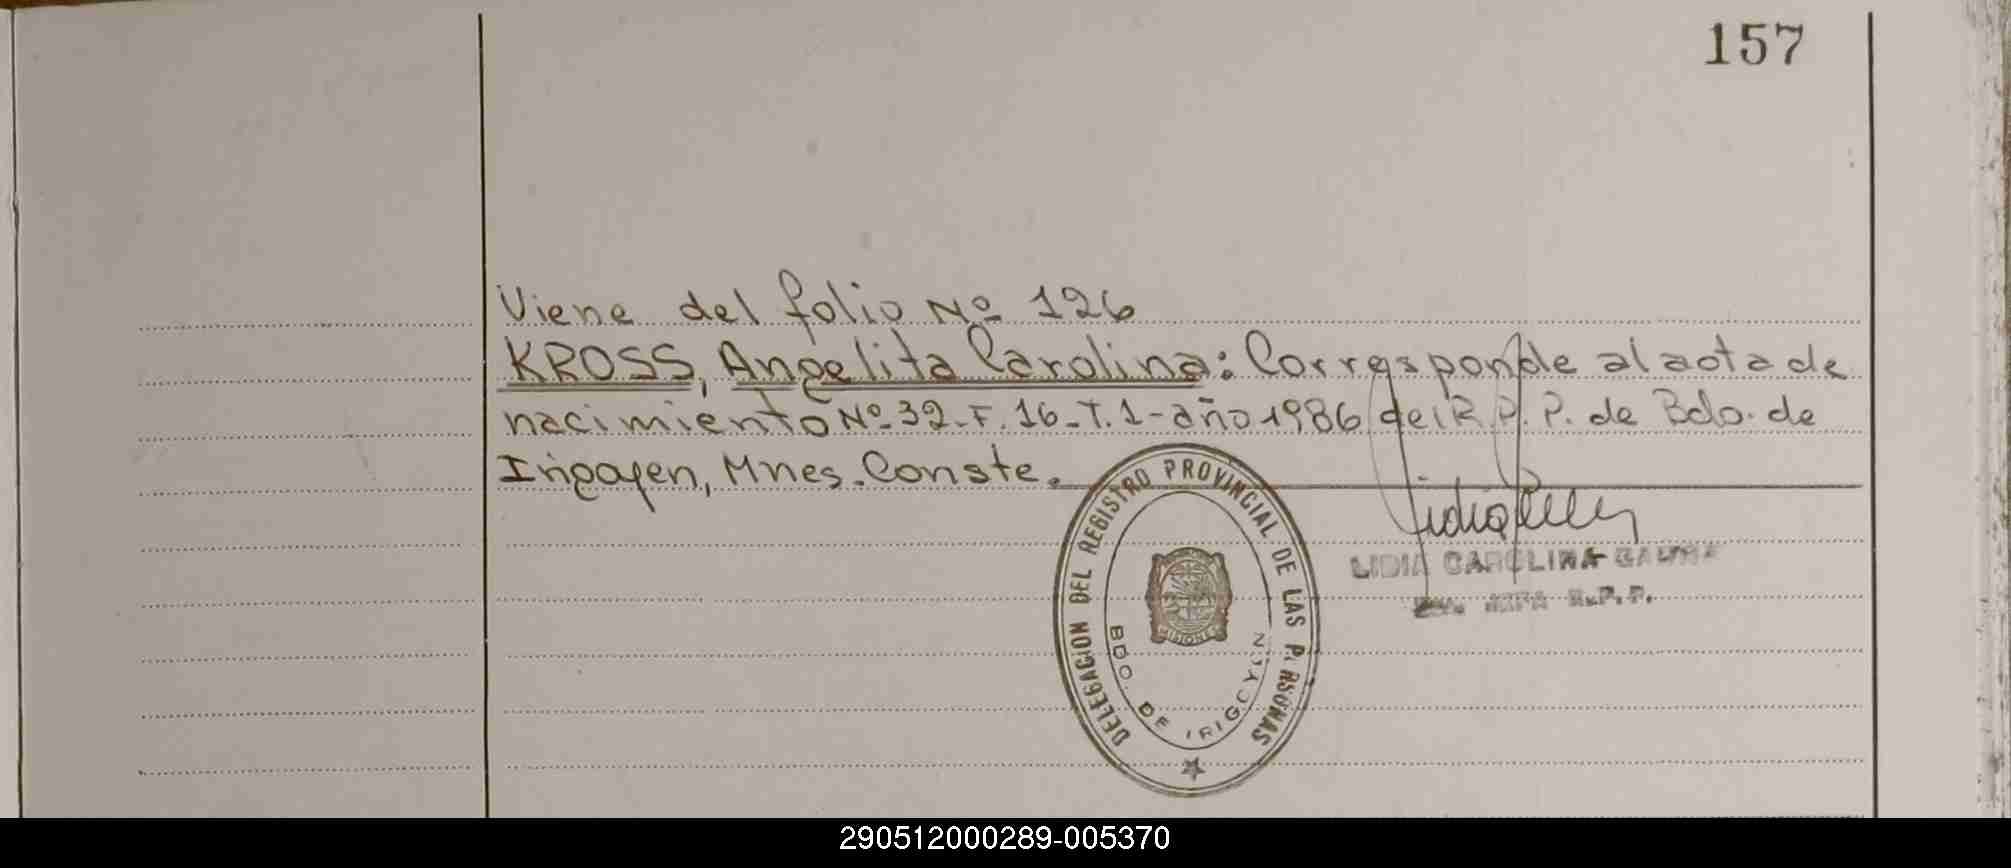 157
Viene del folio Nº 126
KROSS, Angelita Carolina: Corresponde al acta de
nacimiento Nº 32 - F. 16 - T. 1 - año 1986 del R. P. P. de Bdo. de
Irigoyen, Mnes. Conste.
DELEGACION DEL REGISTRO PROVINCIAL DE LAS PERSONAS
BDO. DE IRIGOYEN
MISIONES
LIDIA CAROLINA
JEFA R.P.P.
290512000289-005370